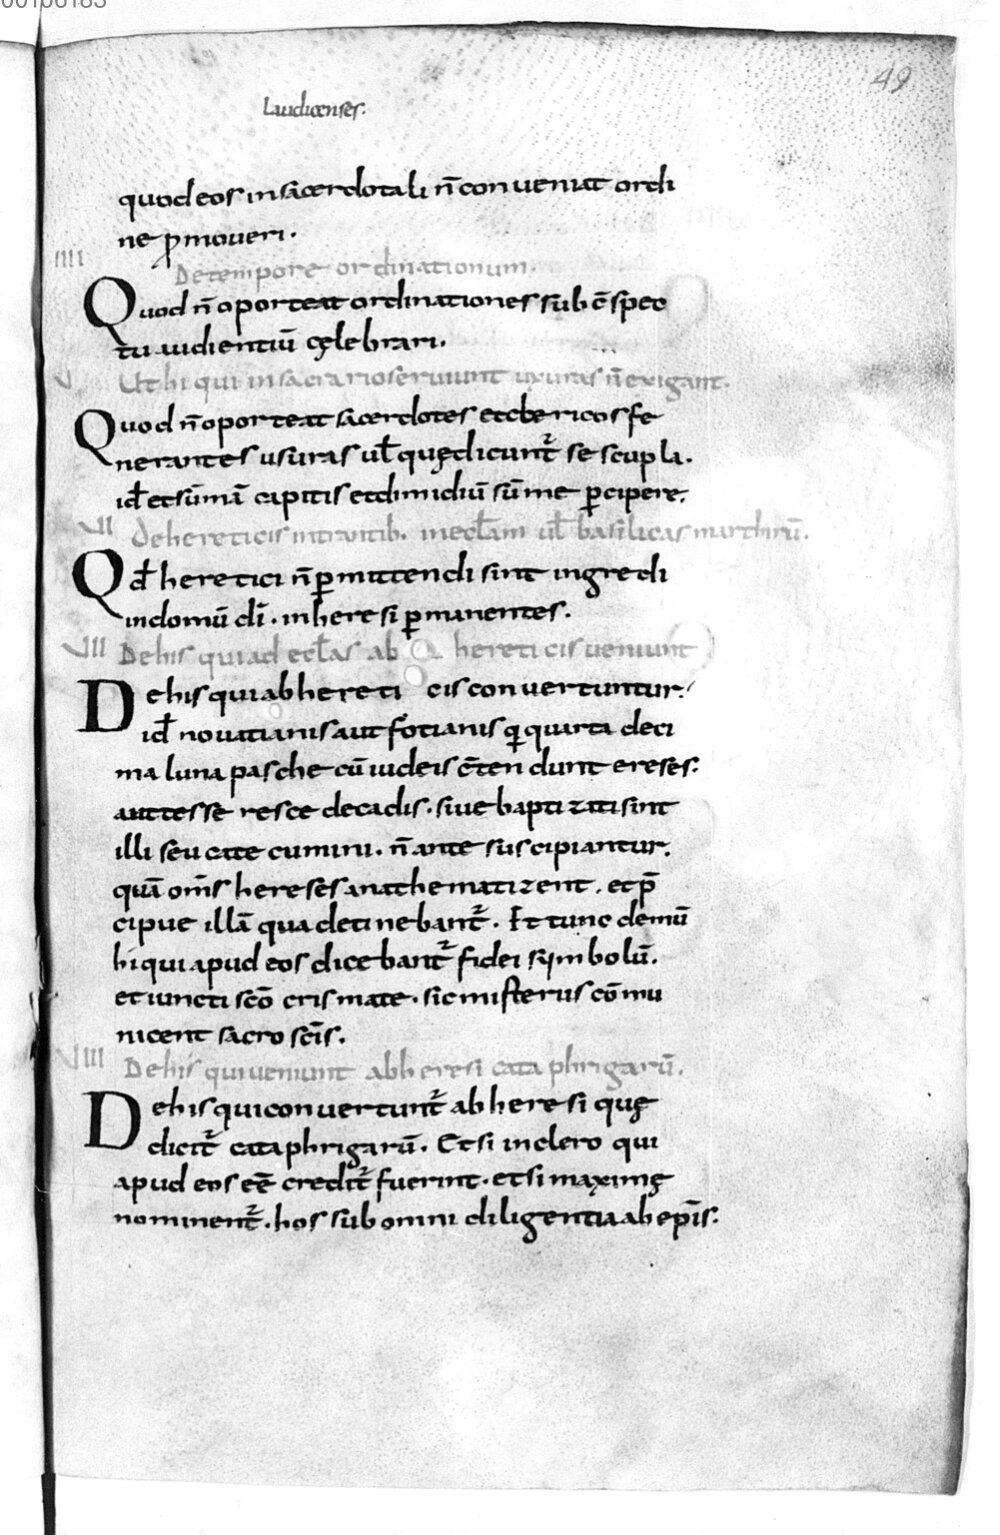 00106183
49
Laudicenses.
quod eos in sacerdotali n̄ conveniat ordi
ne ꝓmoveri.
IIII De tempore ordinationum.
Quod n̄ oporteat ordinationes sub c̄spec
tu audientiū cęlebrari.
V Ut hi qui in sacrario serviunt uxuras n̄ exigant.
Quod n̄ oporteat sacerdotes et clericos fe
nerantes usuras ul̄ quę dicunt᷑ sescupla.
id̄ et sūmā capitis et dimidiū sūme ꝑcipere.
VII De hereticis intrantib. in ecl̄am ul̄ basilicas marthirū.
Qd̄ heretici n̄ ꝑmittendi sint ingredi
in domū dī. in heresi ꝑmanentes.
VII De his qui ad ecl̄as ab hereticis veniunt
De his qui ab hereticis convertuntur.
id̄ novatianis aut fotianis qi quarta deci
ma luna pasche cū iudeis c̄tendunt ereses.
aut tesseresce decadis. sive baptizati sint
illi seu catecumini. n̄ ante suscipiantur.
quā om̄s hereses anathematizent. et p̄
cipue illā qua detinebant᷑. Et tunc demū
hi qui apud eos dicebant᷑ fidei simbolū.
et iuncti scō crismate. sic misterus cōmu
nicent sacro scīs.
VIII De his qui veniunt ab heresi cata phrigarū.
De his qui convertunt᷑ ab heresi quę
dicit᷑ cataphrigarū. Et si in clero qui
apud eos eē credit᷑ fuerint. et si maximę
nominent᷑. hos sub omni diligentia ab ep̄is.